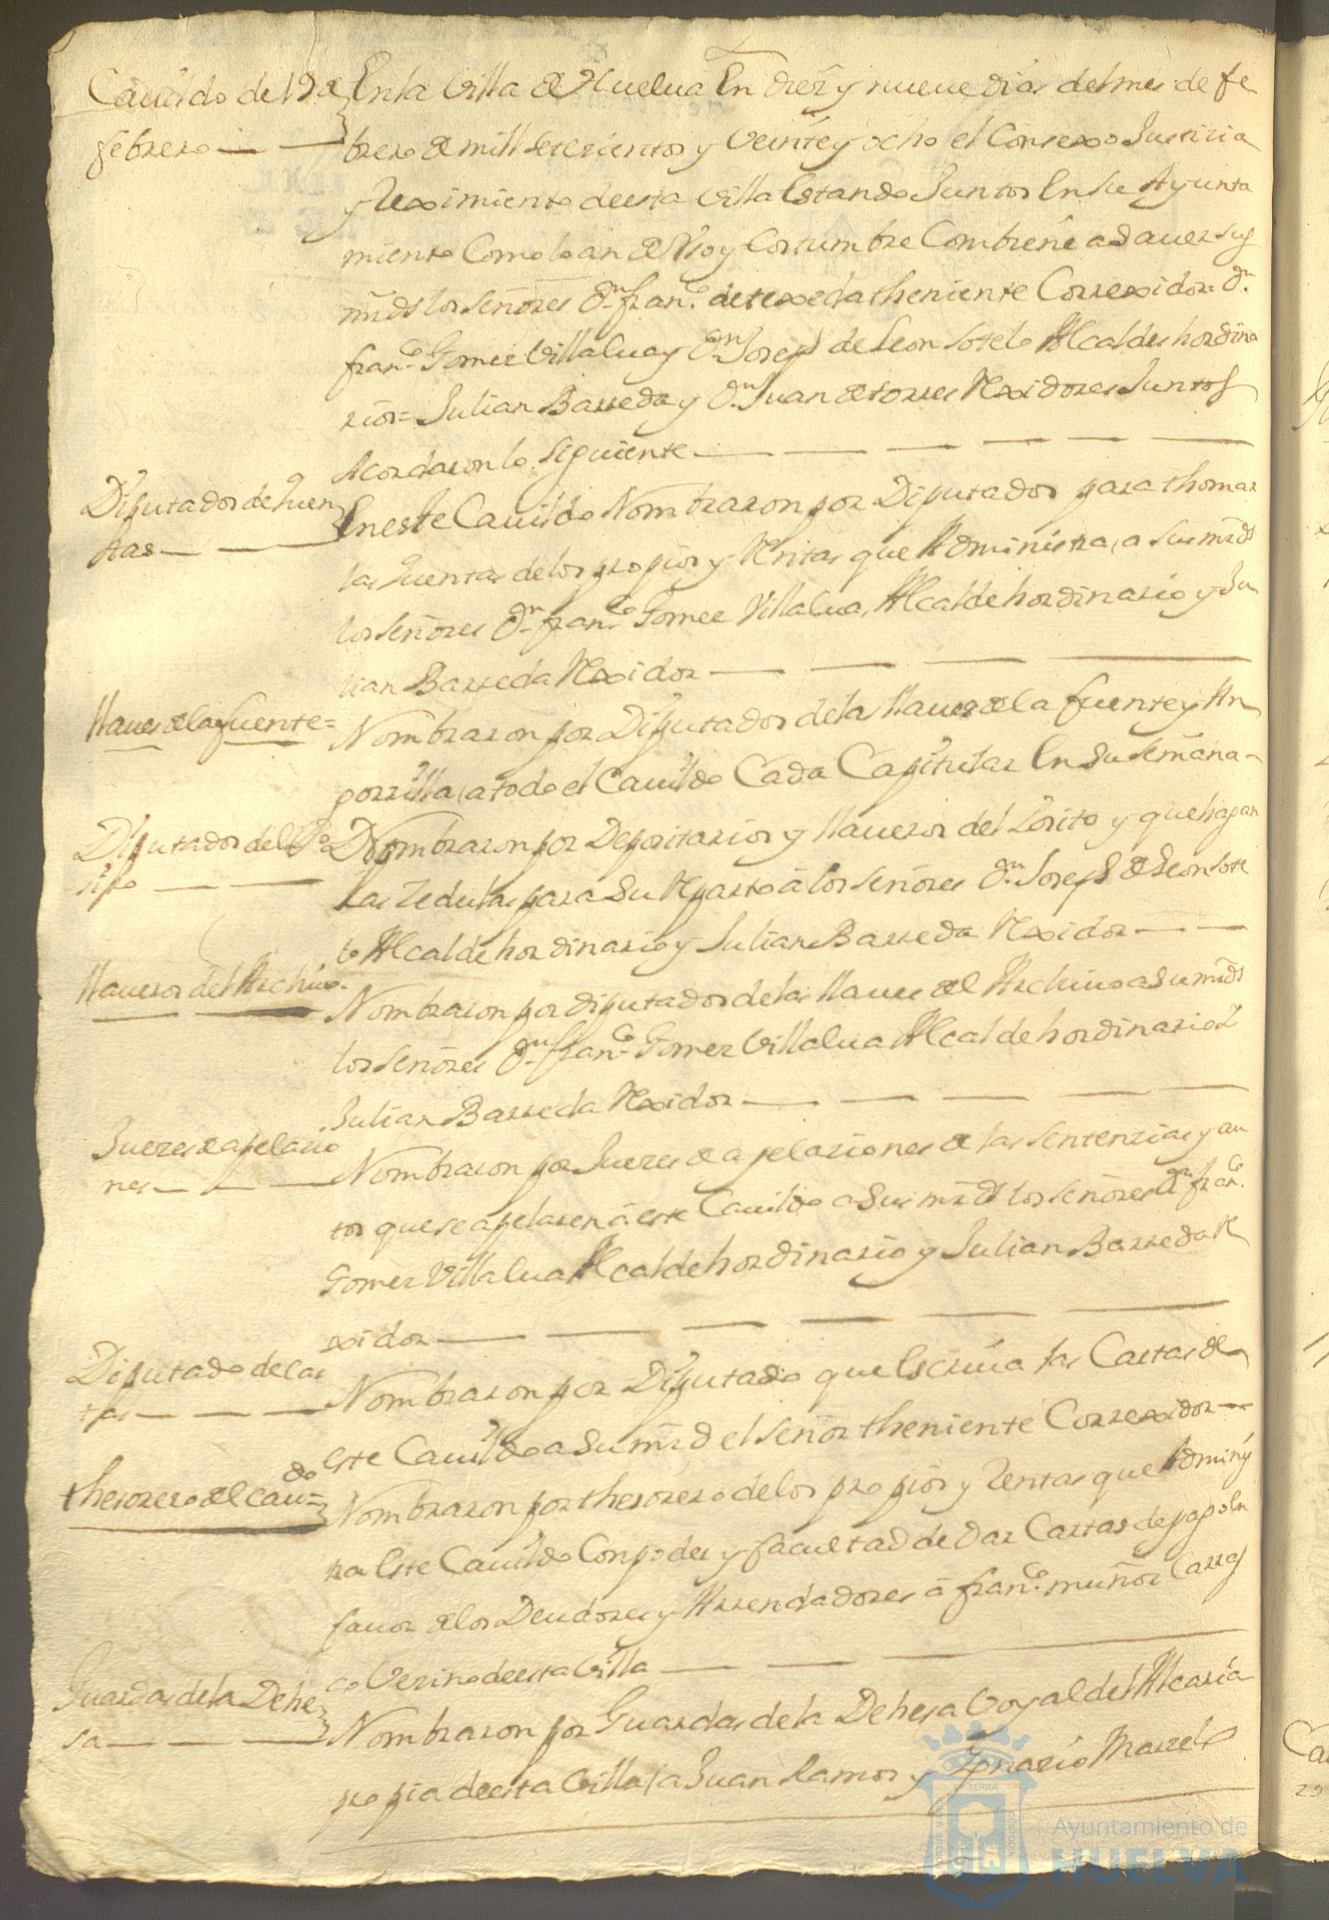 Cauildo de 19 de
febrero
En la Villa de Huelua En diez y nueue dias del mes de fe
brero de mill setezientos y veinte y ocho el Consexo Justizia
y Reximiento desta Villa Estando Juntos En su Ayunta
miento Como lo an de Vso y Costumbre Combiene a sauer sus
mrds los señores Dn franco de texeda theniente Correxidor Dn
franco Gomez Villalua y Dn Joseph de Leon Sotelo Alcaldes hordina
rios= Julian Barreda y Dn Juan de torres Rexidores Juntos
Acordaron lo siguiente
Diputados de quen
tas
En este Cauildo Nombraron por Diputados para thomar
las quentas de los propios y Rentas que Administra, a sus mrds
los señores Dn franco Gomez Villalua, Alcalde hordinario y Ju
lian Barreda Rexidor
llaues de la fuente=
Nombraron por Diputados de las llaues de la fuente y An
gorrilla, a todo el Cauildo Cada Capitular En su semana
Diputados del Po
sito
Nombraron por Depositarios y llaueros del Posito y que hagan
Las Zedulas para su Reparto â los señores Dn Joseph de Leon Sote
lo Alcalde hordinario y Julian Barreda Rexidor
llaueros del Archiuo.
Nombraron por diputados de las llaues del Archiuo a su mrds
los señores Dn franco Gomez Villalua Alcalde hordinario
Julian Barreda Rexidor
Juezes de apelazio
nes
Nombraron por Juezes de apelaziones de las sentenzias y au
tos que se apelaren â este Cauildo a sus mrds los señores Dn franco
Gomez Villalua Alcalde hordinario y Julian Barreda Re
xidor
Diputado de Car
tas
Nombraron por Diputado que Escriua las Cartas de
este Cauildo a su mrd el señor theniente Correxidor
thesorero del cauildo
Nombraron por thesorero de los propios y Rentas que Adminis
tra Este Cauildo Con poder y facultad de dar Cartas de pago En
fauor de los Deudores y Arrendadores â franco muñoz Carras
co Vezino desta Villa
Guardas de la Dehe
sa
Nombraron por Guardas de la Dehesa Boyal del Alcaria
propia desta Villa, a Juan Ramos y Ygnazio Marzelo
Ayuntamiento de
HUELVA